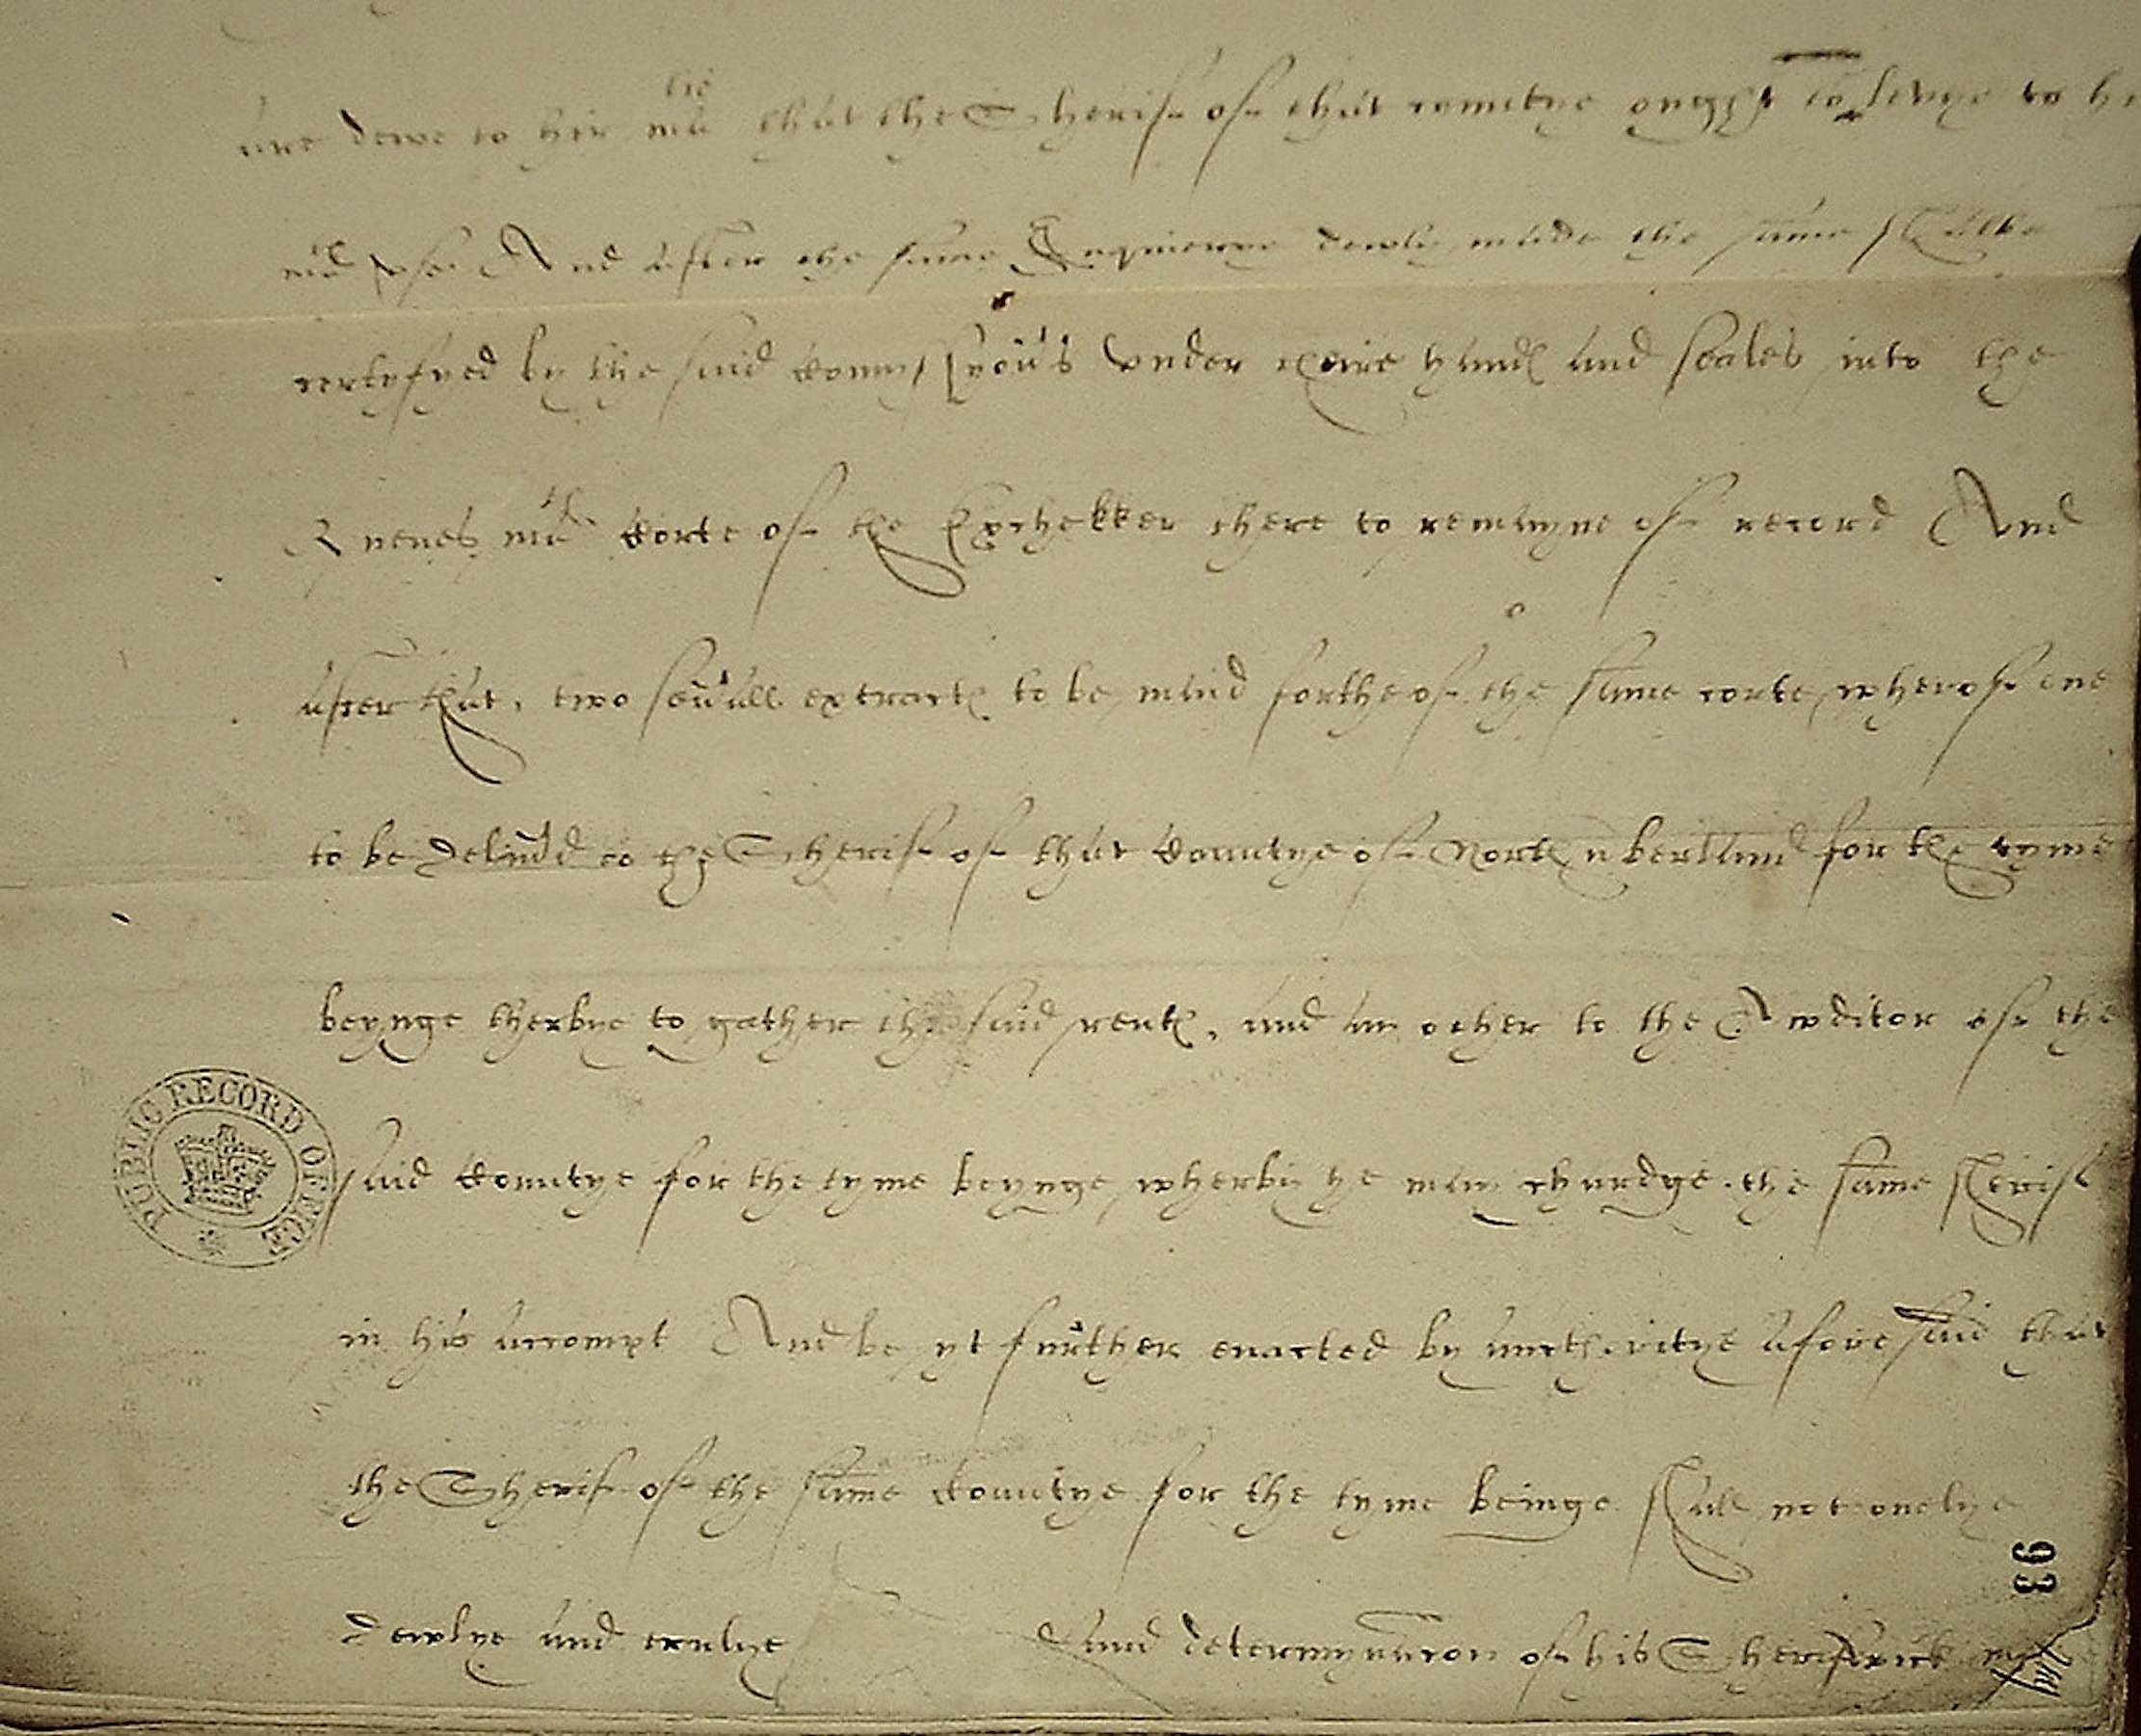 are dewe to hir ma tie that the Sherif of that countye ought to levye to hir
ma ts use And after the same Inquierye dewly made the same shalbe
certyfyed by the said Comyssyoners under theire hand and seales into the
Quenes ma ts Corte of the Exchekker there to remayne of record And
after that, two severall extracts to be maid forthe of the same corte, wherof one
to be deliverd to the Sherif of that Countye of Northumberlland for the tyme
beynge therbye to gather the said rents, and an other to the Awditor of the
said Countye for the tyme beynge, wherby he may chardge the same sherif
in his accompt And be yt further enacted by aucthoritye aforesaid that
the Sherif of the same Countye for the tyme beinge shall not onelye
dewlye and trulye and determynacion of his Sherifwick
PUBLIC RECORD OFFICE
93